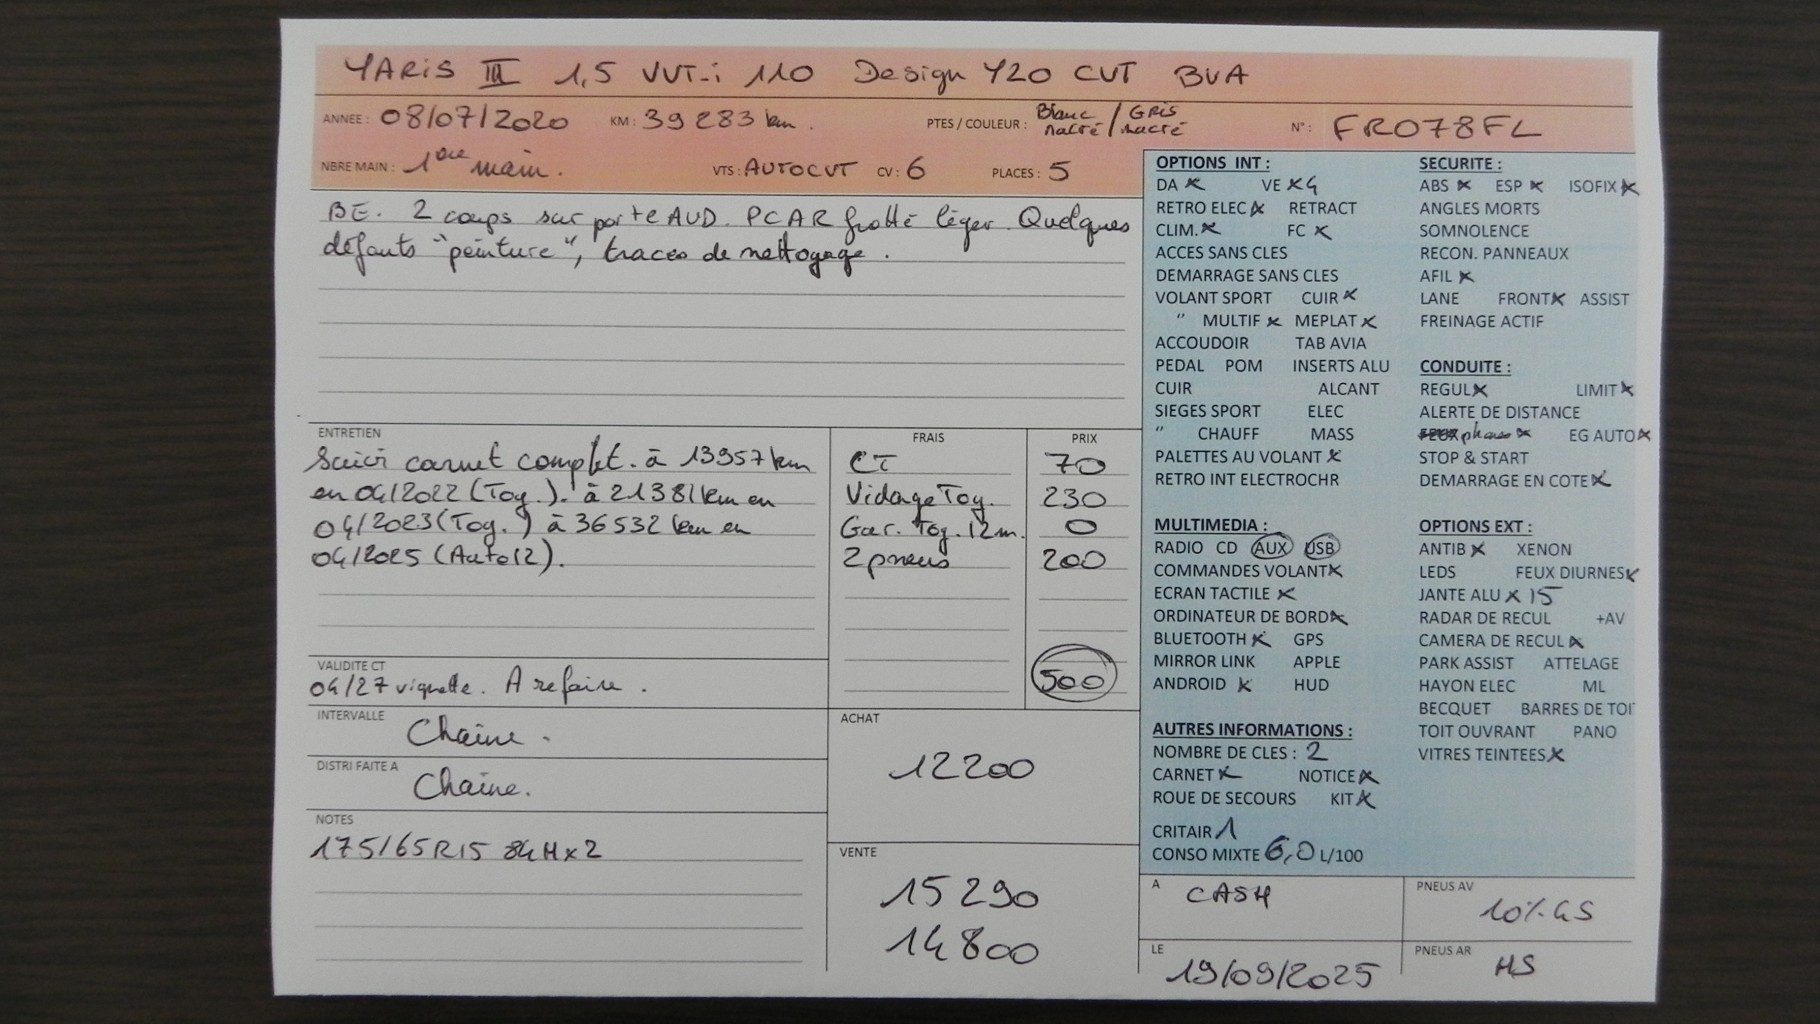 YARIS III 1,5 VVT-i 110 Design Y20 CVT BVA
ANNEE : 08/07/2020 KM : 39 283 km . PTES / COULEUR : Blanc nacré / GRIS nacré N° : FR078FL
NBRE MAIN : 1ère main . VTS : AUTOCVT CV : 6 PLACES : 5
BE. 2 coups sur porte AVD. PCAR frotté léger. Quelques
défauts "peinture", traces de nettoyage .
ENTRETIEN
Suivi carnet complet. à 13957 km
en 04/2022 (Toy.). à 21381 km en
04/2023 (Toy.) à 36532 km en
04/2025 (Auto12).
FRAIS PRIX
CT 70
Vidage Toy. 230
Gar. Toy. 12 m. 0
2 pneus 200
500
VALIDITE CT
04/27 vignette. A refaire .
INTERVALLE
Chaine .
DISTRI FAITE A
Chaine.
NOTES
175/65R15 84H x 2
ACHAT
12200
VENTE
15 290
14 800
OPTIONS INT :
DA x VE x 4
RETRO ELEC x RETRACT
CLIM. x FC x
ACCES SANS CLES
DEMARRAGE SANS CLES
VOLANT SPORT CUIR x
" MULTIF x MEPLAT x
ACCOUDOIR TAB AVIA
PEDAL POM INSERTS ALU
CUIR ALCANT
SIEGES SPORT ELEC
" CHAUFF MASS
PALETTES AU VOLANT x
RETRO INT ELECTROCHR
MULTIMEDIA :
RADIO CD AUX USB
COMMANDES VOLANT x
ECRAN TACTILE x
ORDINATEUR DE BORD x
BLUETOOTH x GPS
MIRROR LINK APPLE
ANDROID x HUD
AUTRES INFORMATIONS :
NOMBRE DE CLES : 2
CARNET x NOTICE x
ROUE DE SECOURS KIT x
CRITAIR 1
CONSO MIXTE 6,0 L/100
SECURITE :
ABS x ESP x ISOFIX x
ANGLES MORTS
SOMNOLENCE
RECON. PANNEAUX
AFIL x
LANE FRONT x ASSIST
FREINAGE ACTIF
CONDUITE :
REGUL x LIMIT x
ALERTE DE DISTANCE
phares x EG AUTO x
STOP & START
DEMARRAGE EN COTE x
OPTIONS EXT :
ANTIB x XENON
LEDS FEUX DIURNES x
JANTE ALU x 15
RADAR DE RECUL +AV
CAMERA DE RECUL x
PARK ASSIST ATTELAGE
HAYON ELEC ML
BECQUET BARRES DE TOI
TOIT OUVRANT PANO
VITRES TEINTEES x
A CASH
LE 19/09/2025
PNEUS AV
10% GS
PNEUS AR HS